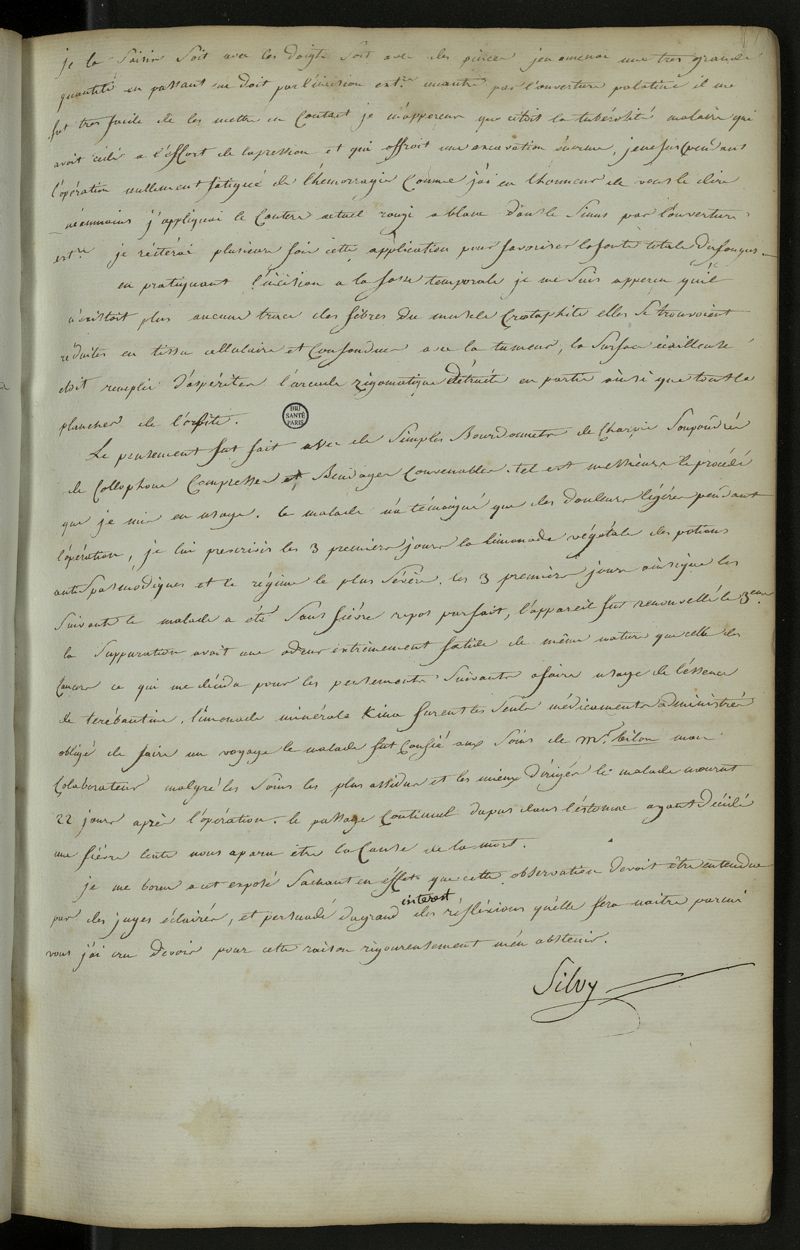 je la saisis soit avec les doigts soit avec des pinces j'en amenai une tres grande
quantité en passant un doit par l'incision ext.re un autre par l'ouverture palatine il me
fut tres facile de les mettre en contact je m'apperçu que c'étoit la tubérosité malaire qui
avoit cédé a l'effort de la pression et qui offroit une excavation énorme, je ne fus pendant
l'opération nullement fatigué de l'hémorragie comme j'ai eu l'honneur de vous le dire
néanmoins j'appliquai le cautere actuel rougi a blanc dans le sinus par l'ouverture
ext.re je réiterai plusieurs fois cette application pour favoriser la fonte totale du fongus
en pratiquant l'incision a la fosse temporale je me suis apperçu qu'il
n'existoit plus aucune trace des fibres du muscle Crotaphite elles se trouvoient
réduites en tissu cellulaire et confondues avec la tumeur, la surface écailleuse
étoit remplie d'aspérités l'arcade zigomatique détruite en partie ainsi que tout le
plancher de l'orbite.
BIU
SANTÉ
PARIS
Le pensement fut fait avec de simples Bourdonnets de charpie soupoudrés
de Collophone Compresses et Bandages Convenables. tel est messieurs le procédé
que je mis en usage. le malade n'a témoigné que des douleurs légères pendant
l'opération, je lui prescrivis les 3 premiers jours la limonade végétale des potions
antispasmodiques et le régime le plus sévère. les 3 premiers jours ainsi que les
suivants le malade a été sans fièvre repos parfait, l'appareil fut renouvellé le 3eme
la suppuration avait une odeur extrèmement fœtide de même nature que celle des
cancers ce qui me décida pour les pensements suivants a faire usage de l'éssence
de terébantine, limonade minérale Kina furent les seuls médicaments administrés
obligé de faire un voyage le malade fut confié aux soins de Mr. bilon mon
Colaborateur malgré les soins les plus assidus et les mieux dirigés le malade mourut
22 jours après l'opération. le passage continuel du pus dans l'éstomac ayant décidé
une fièvre lente nous a paru être la cause de la mort.
je me borne a cet exposé sachant en éffet que cette observation devoit être entendue
par des juges éclairés, et persuadé du grand interest des réfléxions qu'elle fera naitre parmi
vous j'ai cru devoir pour cette raison rigoureusement m'en abstenir.
Silvy